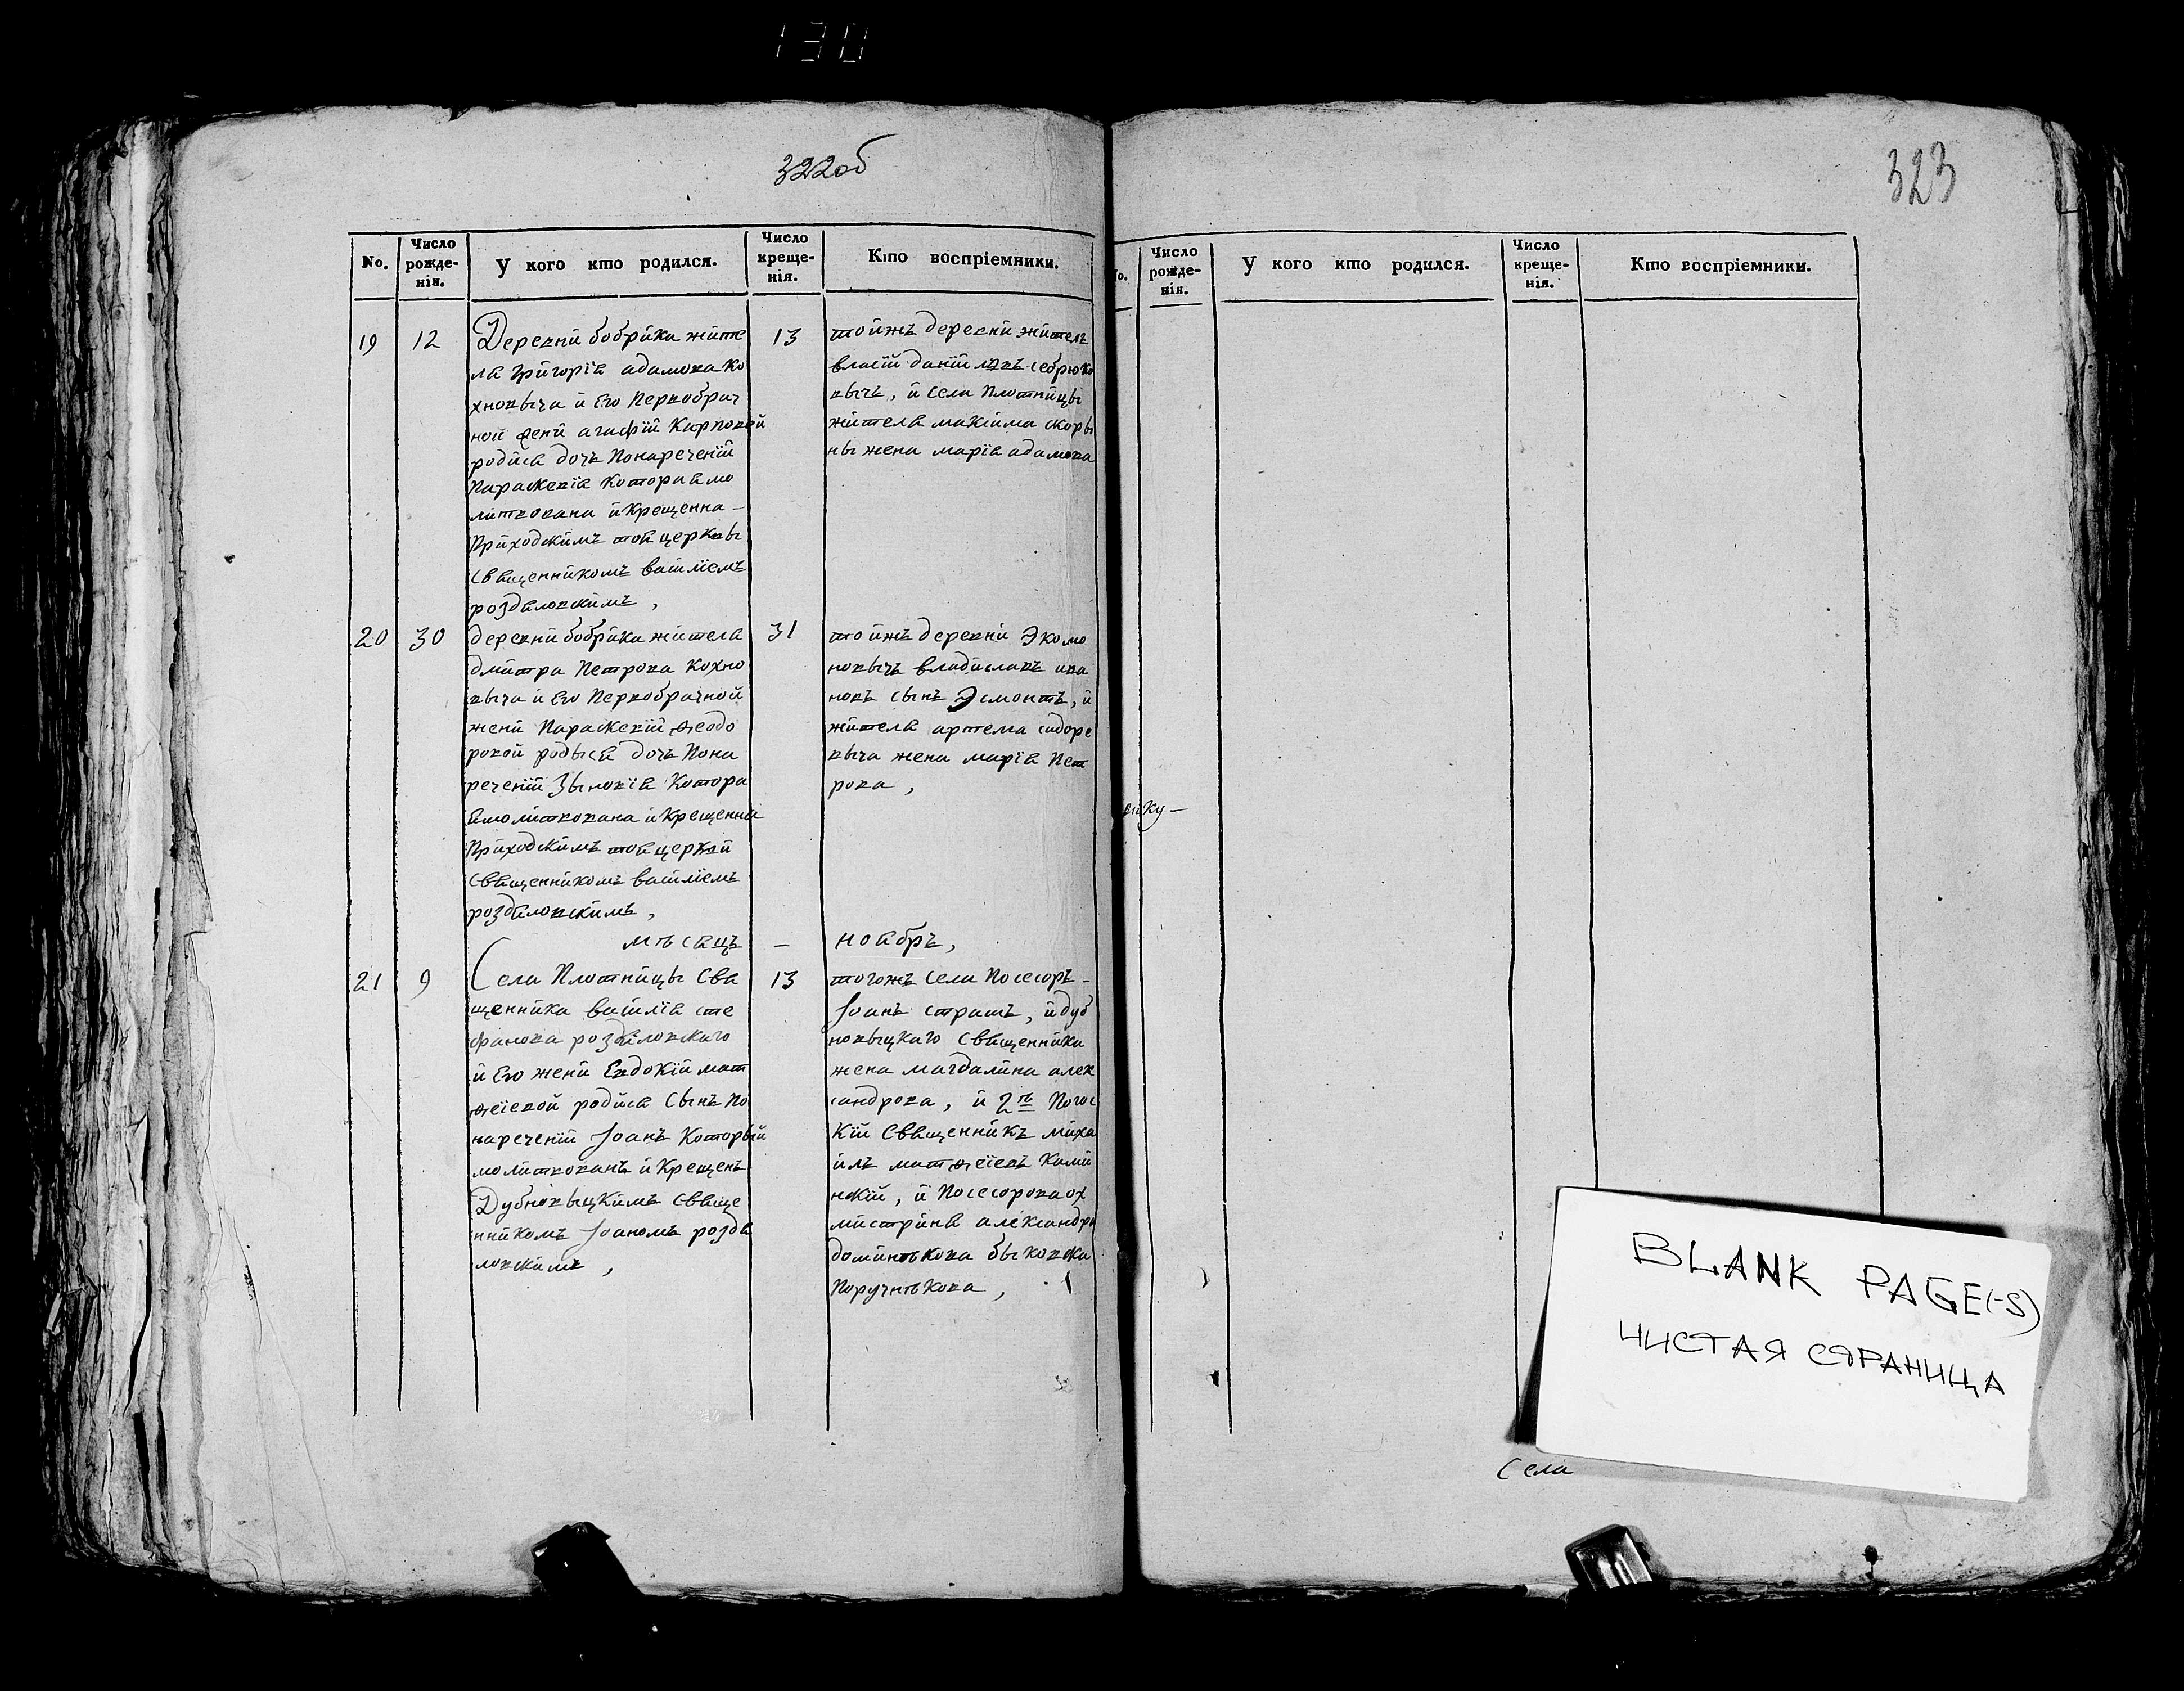 130
322об
323
No.
Число рожде-нія.
У кого кто родился.
Число креще-нія.
Кто воспріемники.
19
12
Деревни бобрика жите
ля григорія адамова ко
хновыча и его первобрач
ной жени агафіи карповой
родися дочь понареченіи
параскевія которая мо
литвована и крещенна –
приходскимъ тоя церквы
священникомъ василіемъ
роздяловскимъ,
13
тоижъ деревни житель
власій даніиловъ себрюко
вычъ, и села плотницы
жителя максима скоры
ны жена марія адамова
20
30
деревни бобрика жителя
дмитра петрова кохно
выча и его первобрачной
жени параскевіи ѳеодо
ровой родыся дочь пона
реченіи зыновія котора
я молитвована и крещенна
приходскимъ тоя церкви
священникомъ василіемъ
роздяловскимъ,
31
тоижъ деревни эконо
мовычъ владиславъ ива
новъ сынъ Эсмонтъ, и
жителя артема сидоре
выча жена марія пет
рова,
мѣсяцъ – ноябрь,
21
9
Села Плотницы свя
щенника василія сте
фанова роздяловскаго
и его жени Евдокіи мат
ѳеіевой родися сынъ по
нареченіи Іоанъ который
молитвованъ и крещенъ
Дубновыцкимъ свяще
нникомъ Іоаномъ роздя
ловскимъ,
13
тогожъ села посесоръ –
Іоанъ страшъ, и дуб
новыцкаго священника
жена магдалина алек
сандрова, и 2ѣ погос
кій священникъ миха
илъ матѳеіевъ ками
нскій, и посесорова ох
мистрина александра
доминѣкова быковска
поручнѣкова,
No.
Число рожде-нія.
У кого кто родился.
Число креще-нія.
Кто воспріемники.
ку –
BLANK PAGE(-S)
ЧИСТАЯ СТРАНИЦА
Села